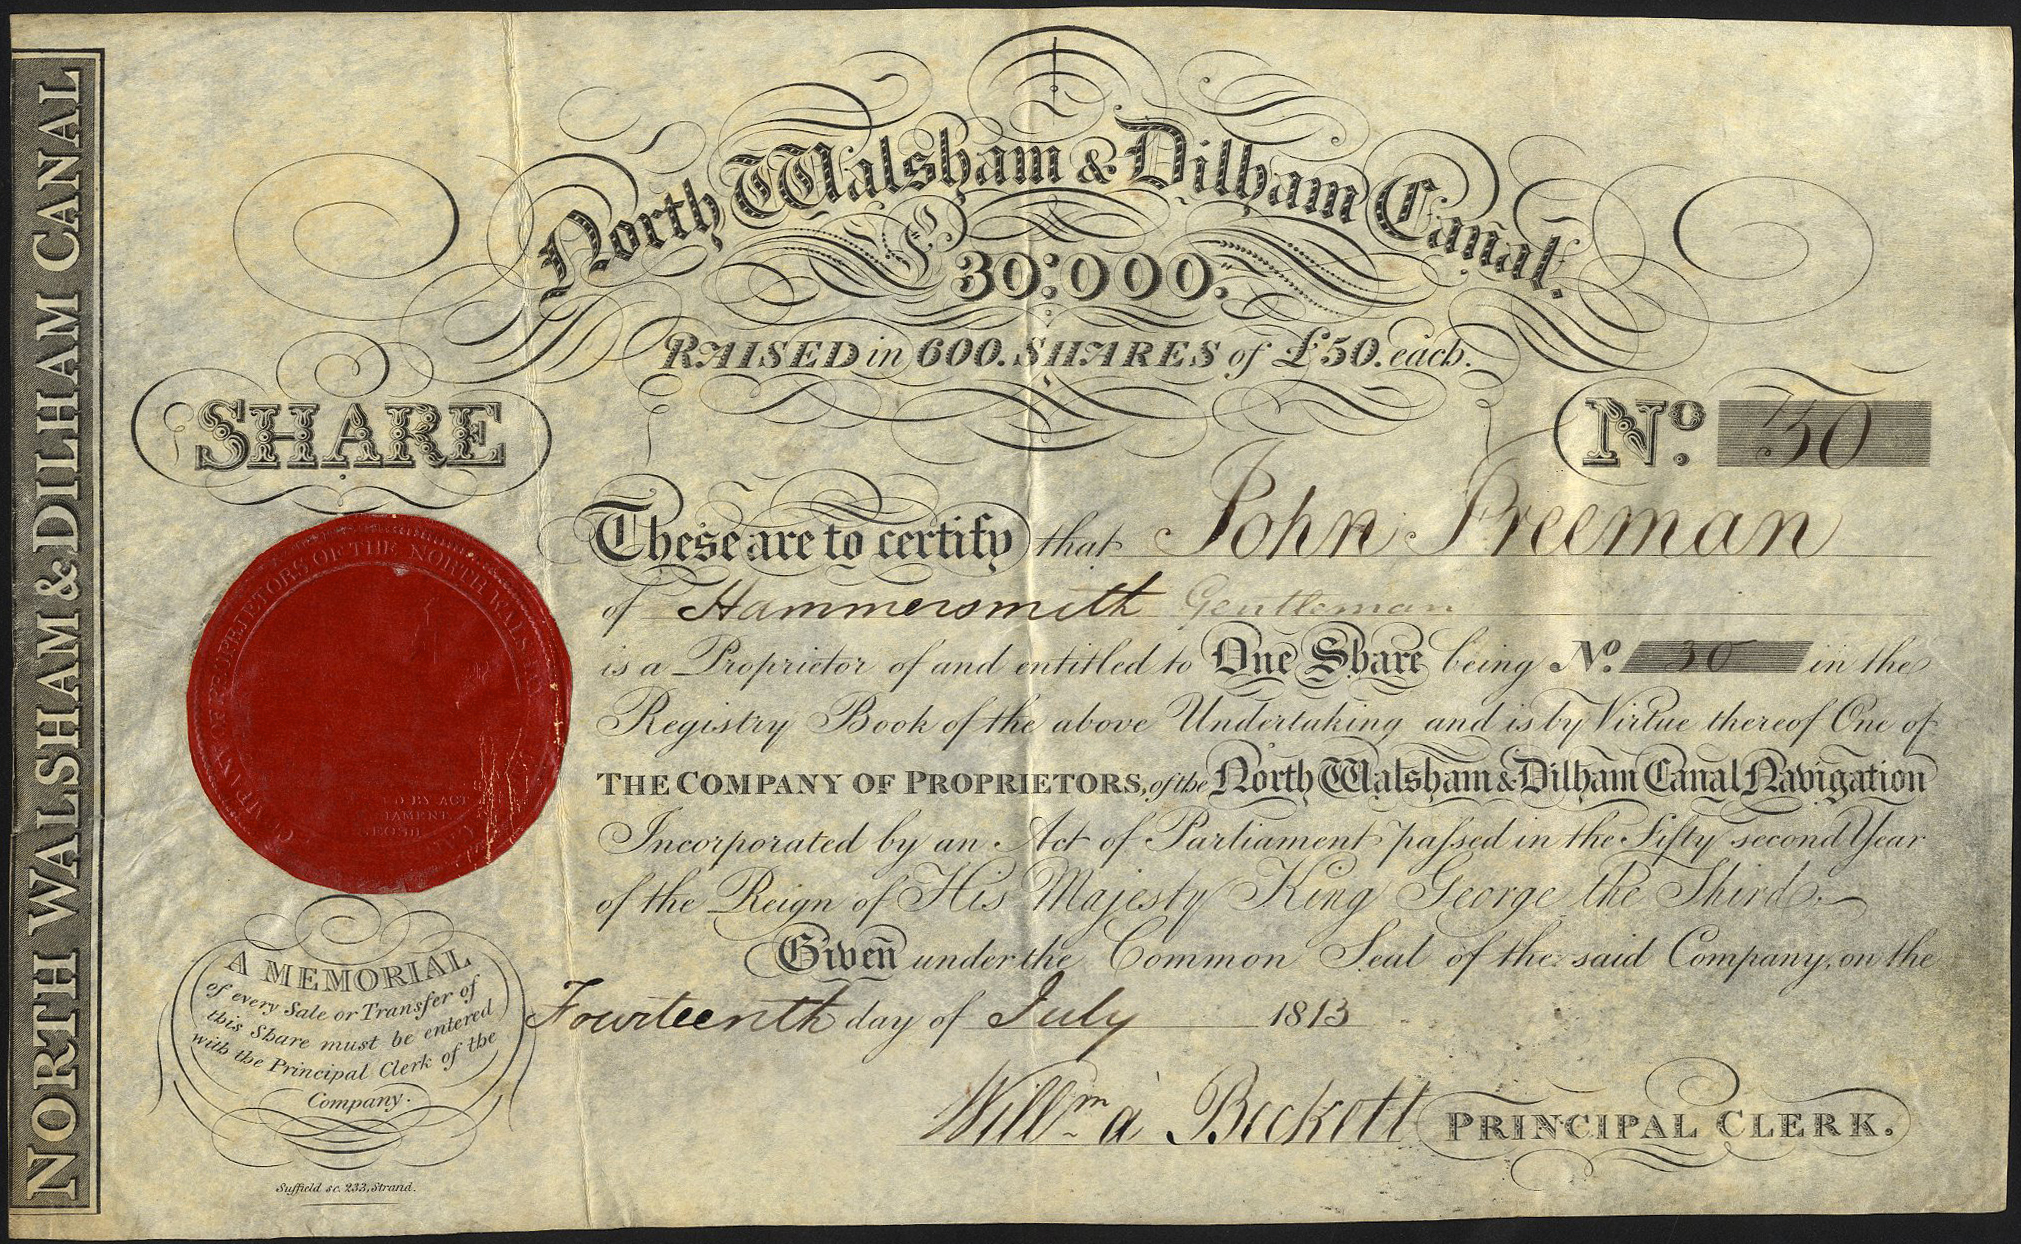 NORTH WALSHAM & DILHAM CANAL
North Walsham & Dilham Canal.
£30:000.
RAISED in 600. SHARES of £50. each.
SHARE
No. 50
These are to certify that John Freeman
of Hammersmith Gentleman
is a Proprietor of and entitled to One Share being No. 50 in the
Registry Book of the above Undertaking and is by Virtue thereof One of
THE COMPANY OF PROPRIETORS, of the North Walsham & Dilham Canal Navigation
Incorporated by an Act of Parliament passed in the Fifty second Year
of the Reign of His Majesty King George the Third.
Given under the Common Seal of the said Company, on the
Fourteenth day of July 1813
Willm a' Beckett PRINCIPAL CLERK.
COMPANY OF PROPRIETORS OF THE NORTH WALSHAM
BY ACT
A MEMORIAL
of every Sale or Transfer of
this Share must be entered
with the Principal Clerk of the
Company.
Suffield sc. 233, Strand.